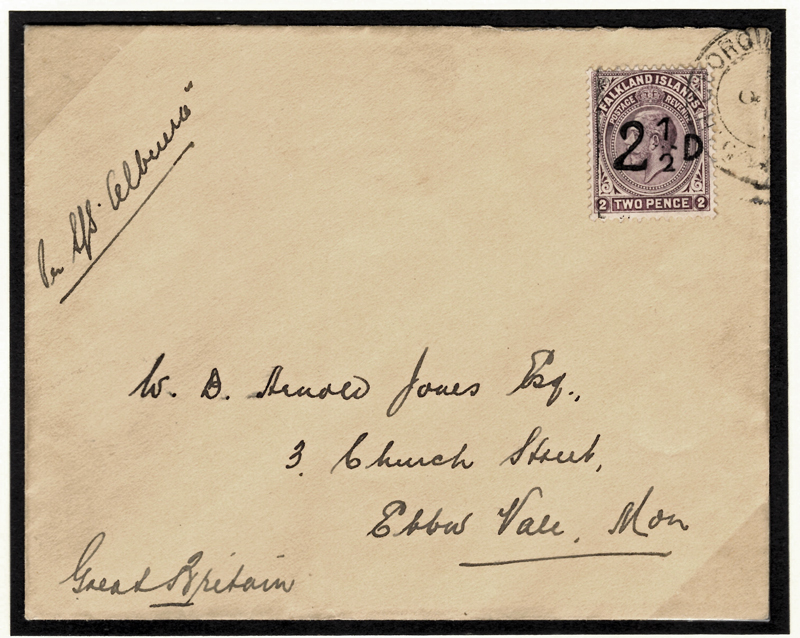 Per S/S. Albuera"
FALKLAND ISLANDS
POSTAGE REVENUE
2 1/2 D
2 TWO PENCE 2
W. D. Arnold Jones Esq.,
3. Church Street,
Ebbw Vale, Mon
Great Britain